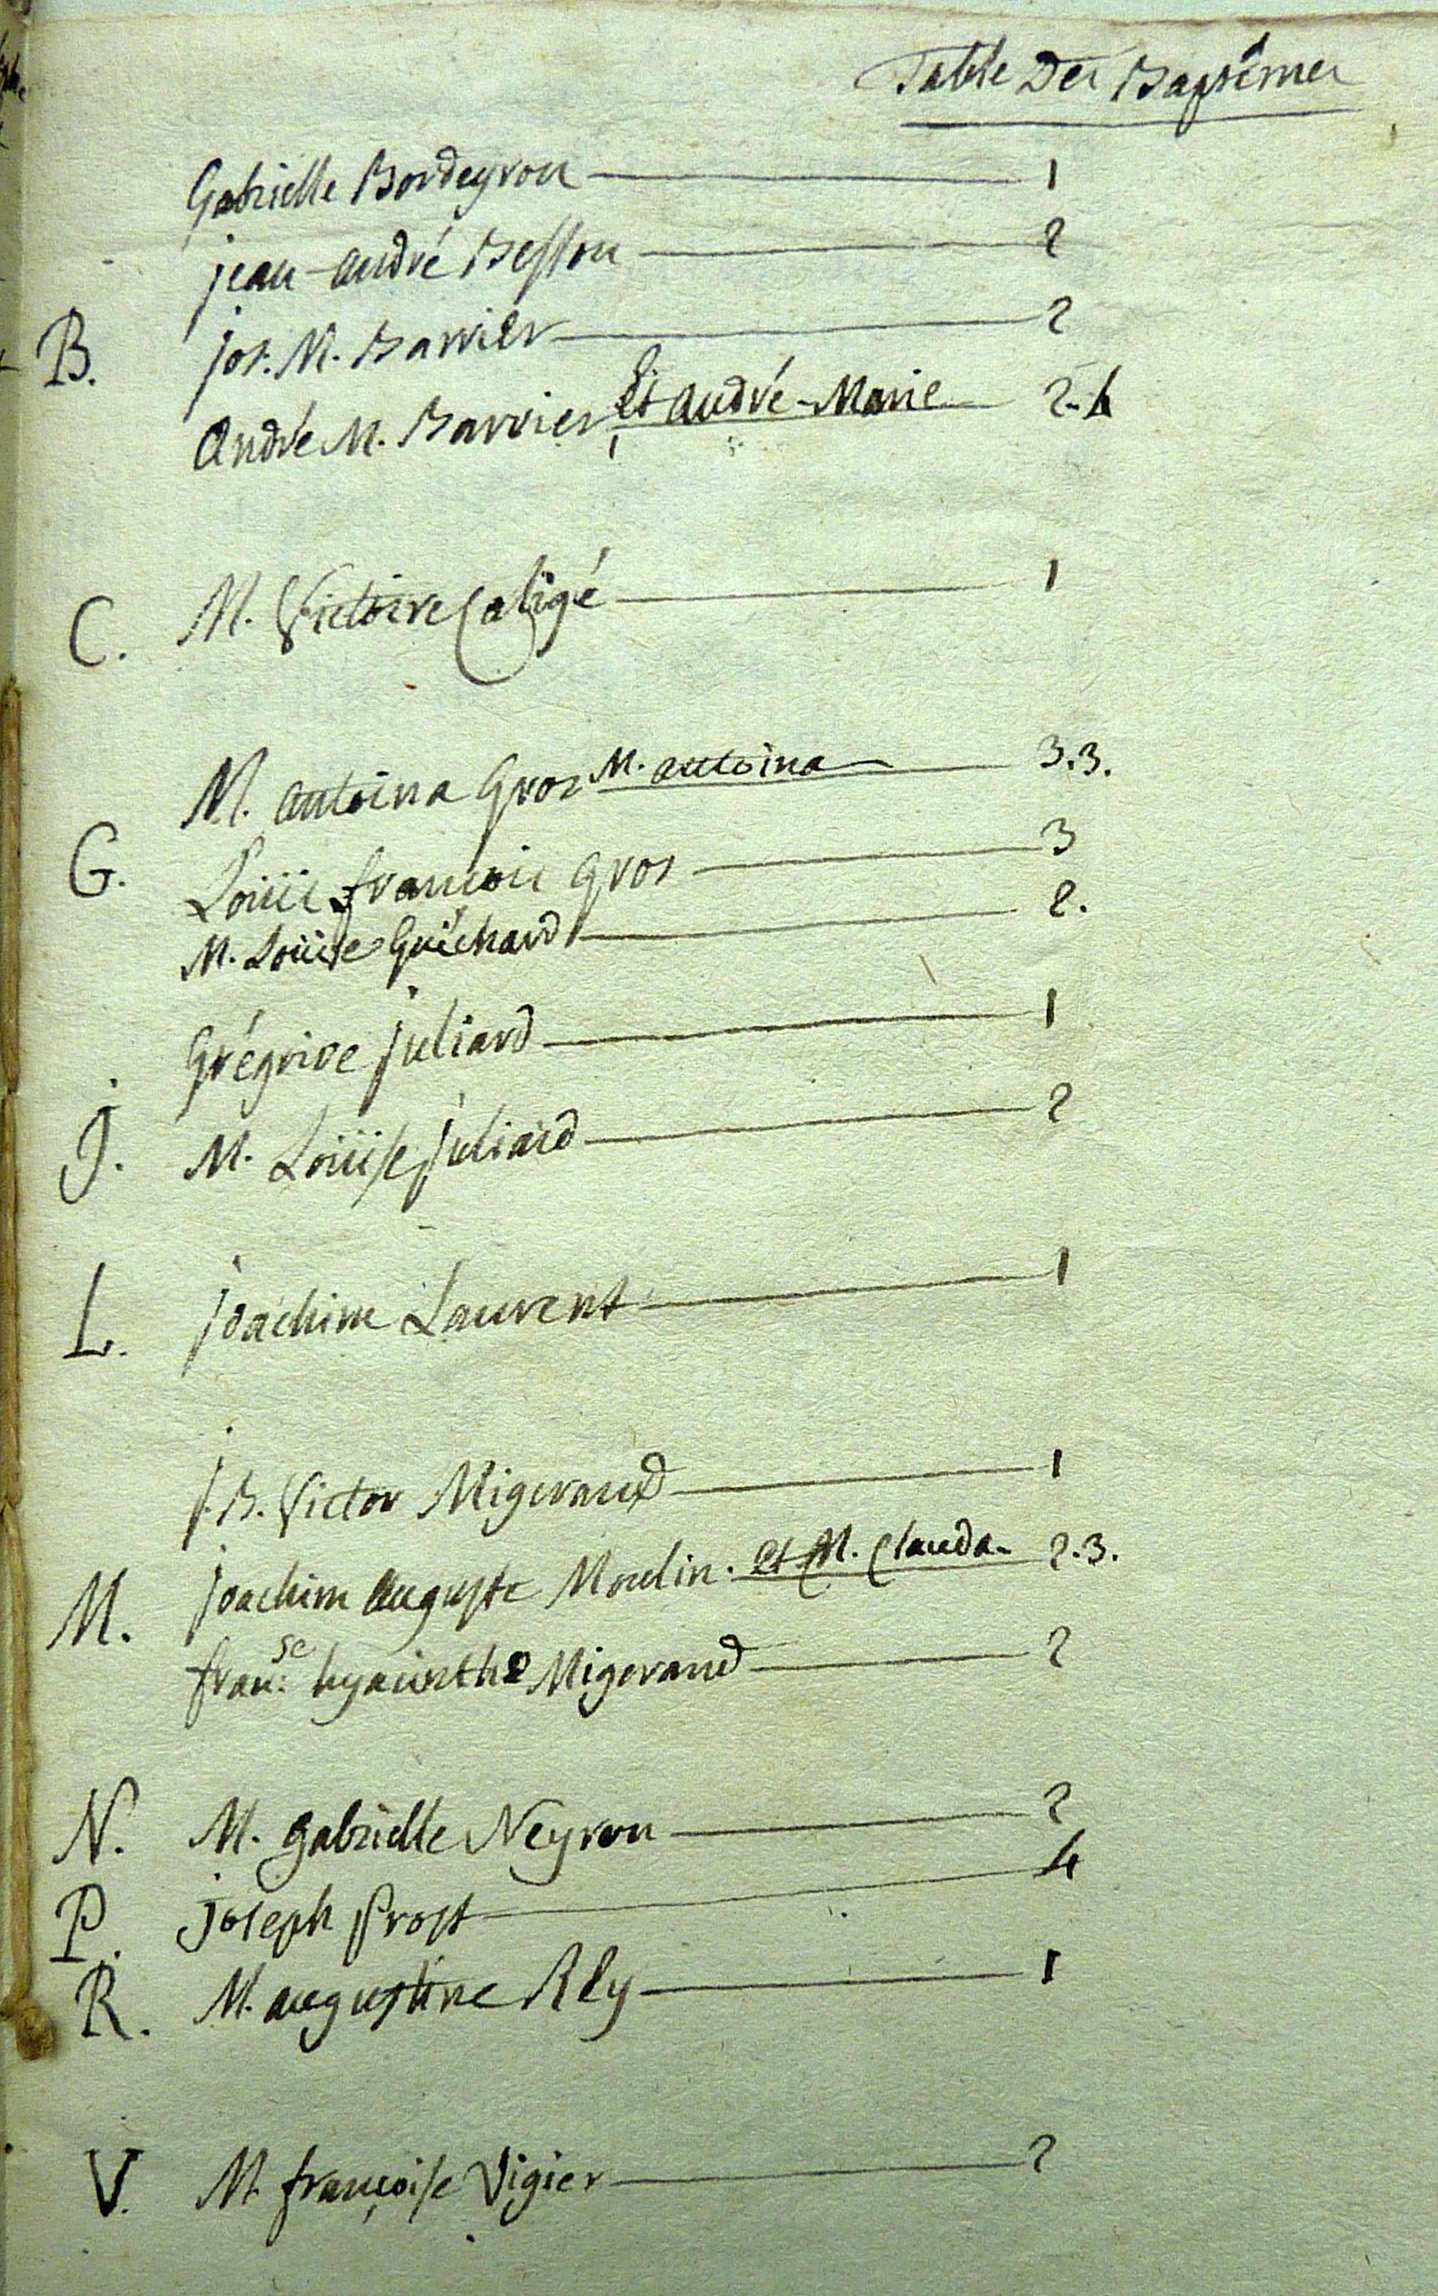 Table Des Baptêmes
Gabrielle Bordeyron 1
jean-andré Besson 2
B. jos. M. Barrier 2
André M. Barrier Et André-Marie 2.4
C. M. Victoire Caligé 1
M. antoina Gros M. antoina 3.3.
G. Loüis françois Gros 3
M. Loüise Guichard 2.
Grégoire juliard 1
J. M. Loüise juliard 2
L. joachim Laurent 1
j. B. Victor Migerand 1
M. joachim Auguste Moulin. et M. Clauda 2.3.
fran:se hyacinthe Migerand 2
N. M. gabrielle Neyron 2
P. joseph Prost 4
R. M. augustine Rey 1
V. M. françoise Vigier 2